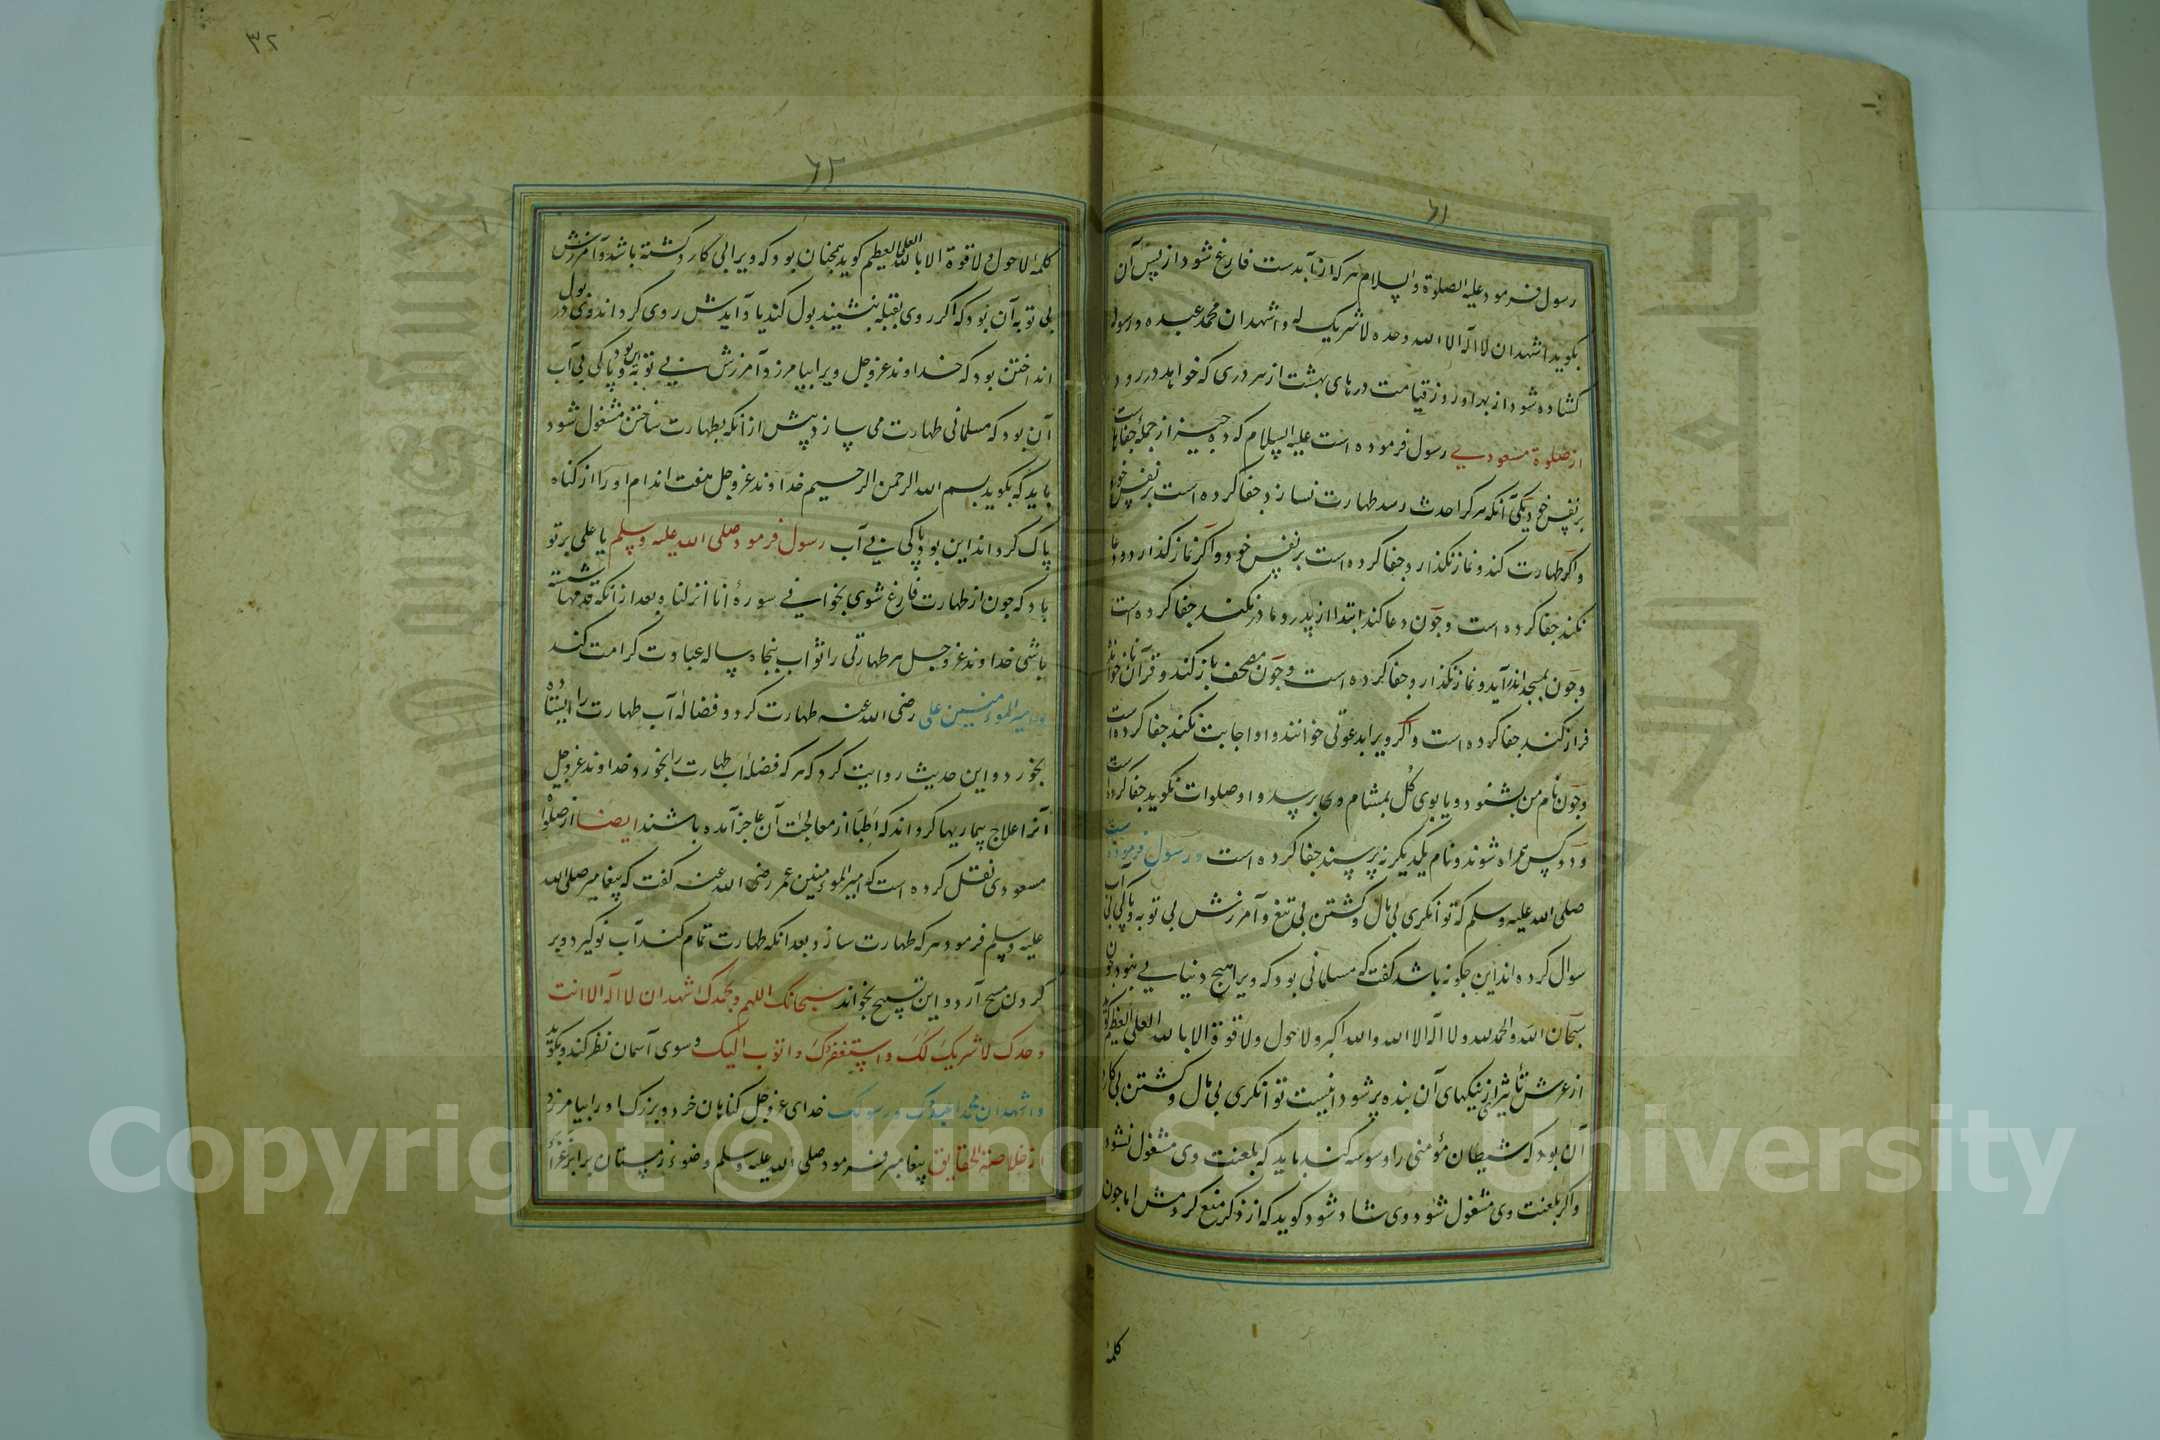 ٦١
رسول فرمود علیه الصلوة والسلام هر که از آبدست فارغ شود از پس آن
بگوید اشهد ان لا اله الا الله وحده لا شریک له و اشهد ان محمد عبده و رسوله
کشاده شود از بهر او روز قیامت درهای بهشت از هر دری که خواهد در رود
از صلوة مسعودی رسول فرموده است علیه السلام که ده چیز از جمله جفاهاست
بر نفس خود یکی آنکه هر کرا حدث رسد طهارت نسازد جفا کرده است بر نفس خود
و اکر طهارت کند و نماز نکذارد جفا کرده است بر نفس خود و اکر نماز کذارد و دعا
نکند جفا کرده است و چون دعا کند ابتدا از پدر و مادر نکند جفا کرده است
و چون بمسجد اندر آید و نماز نکذارد جفا کرده است و چون مصحف باز کند و قرآن ناخوانده
فراز کند جفا کرده است و اکر ویرا بدعوتی خوانند و او اجابت نکند جفا کرده است
و چون نام من بشنود و یا بوی کل بمشام وی برسد و او صلوات نکوید جفا کرده است
و دو کس همراه شوند و نام یکدیکر نپرسند جفا کرده است و رسول فرموده است
صلی الله علیه وسلم که توانکری بی مال و کشتن بی تیغ و آمرزش بی توبه و پاکی بی آب
سوال کرده اند این چکونه باشد کفت که مسلمانی بود که ویرا هیچ دنیایی نبود چون
سبحان الله والحمد لله ولا اله الا الله والله اکبر ولا حول ولا قوة الا بالله العلی العظیم کوید
از عرش تا ثری از نیکیهای آن بنده پر شود اینست توانکری بی مال و کشتن بی کارد
آن بود که شیطان مؤمنی را وسوسه کند باید که بلعنت وی مشغول نشود
و اکر بلعنت وی مشغول شود وی شاد شود کوید که از ذکر منع کردمش اما چون
کلمهٔ
٣٢
٦٢
کلمهٔ لا حول ولا قوة الا بالله العلی العظیم کوید همچنان بود که ویرا بی کارد کشته باشد و آمرزش
بی توبه آن بود که اکر روی بقبله بنشیند بول کند یا د آیدش روی کرداند وی در بول
انداختن بود که خداوند عز وجل ویرا بیامرزد آمرزش بی توبه این بود و پاکی بی آب
آن بود که مسلمانی طهارت می سازد پیش از آنکه بطهارت ساختن مشغول شود
باید که بکوید بسم الله الرحمن الرحیم خداوند عز وجل هفت اندام او را از کناه
پاک کرداند این بود پاکی بی آب رسول فرمود صلی الله علیه وسلم یا علی بر تو
باد که چون از طهارت فارغ شوی بخوانی سورهٔ انا انزلناه بعد از آنکه قدمها شسته
باشی خداوند عز وجل هر طهارتی را ثواب پنجاه ساله عبادت کرامت کند
امیر المؤمنین علی رضی الله عنه طهارت کرد و فضالهٔ آب طهارت را ایستاده
بخورد و این حدیث روایت کرد که هر که فضلهٔ آب طهارت را بخورد خداوند عز وجل
آنرا علاج بیماریها کرداند که اطبا از معالجات آن عاجز آمده باشند ایضا از صلوة
مسعودی نقل کرده است که امیر المؤمنین عمر رضی الله عنه کفت که پیغامبر صلی الله
علیه وسلم فرمود هر که طهارت سازد و بعد انکه طهارت تمام کند آب نو کیرد و بر
کردن مسح آرد و این تسبیح بخواند سبحانک اللهم وبحمدک اشهد ان لا اله الا انت
وحدک لا شریک لک واستغفرک واتوب الیک و سوی آسمان نظر کند و بکوید
واشهد ان محمدا عبدک ورسولک خدای عز وجل کناهان خرد و بزرک او را بیامرزد
از خلاصة الحقایق پیغامبر فرمود صلی الله علیه وسلم وضوء زمستان برابر غزا
Copyright © King Saud University